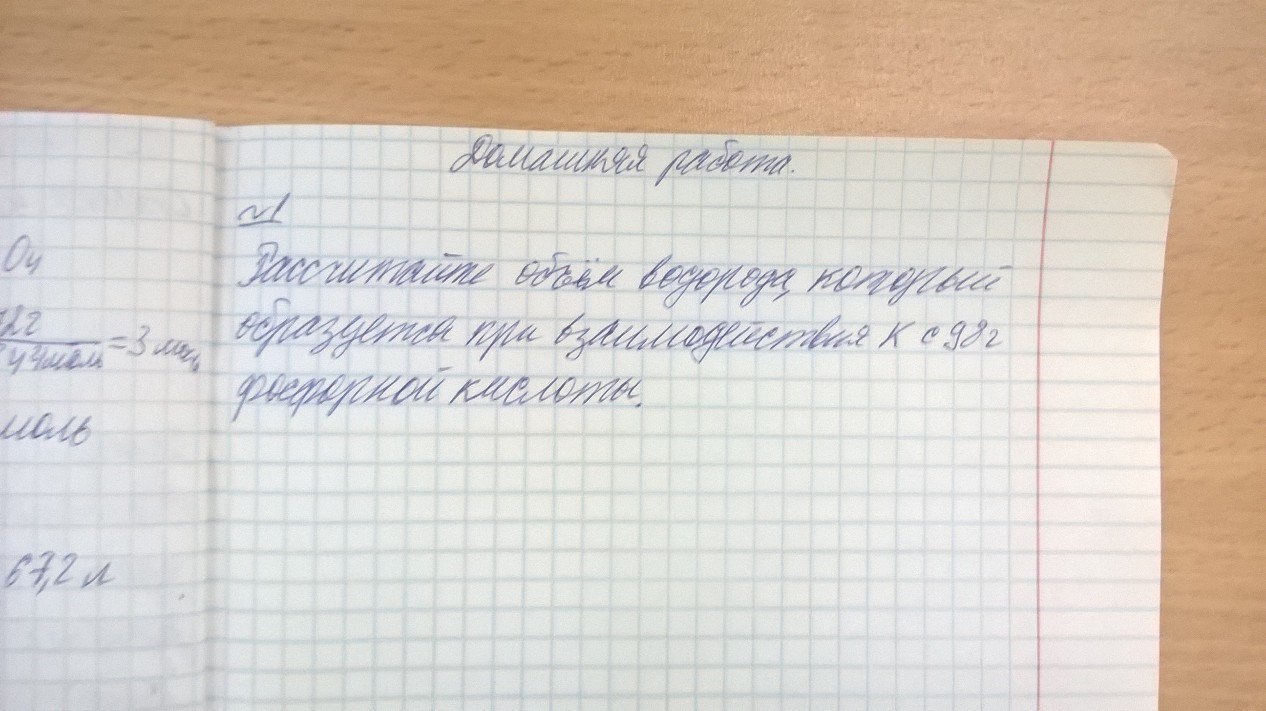 Домашняя работа.
№1
Рассчитайте объём водорода, который
образуется при взаимодействия К с 98г
фосфорной кислоты.
O4
=3 моль
моль
67,2 л